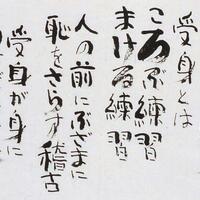 受身とは
ころぶ練習
まける練習
人の前にぶざまに
恥をさらす稽古
受身が身に